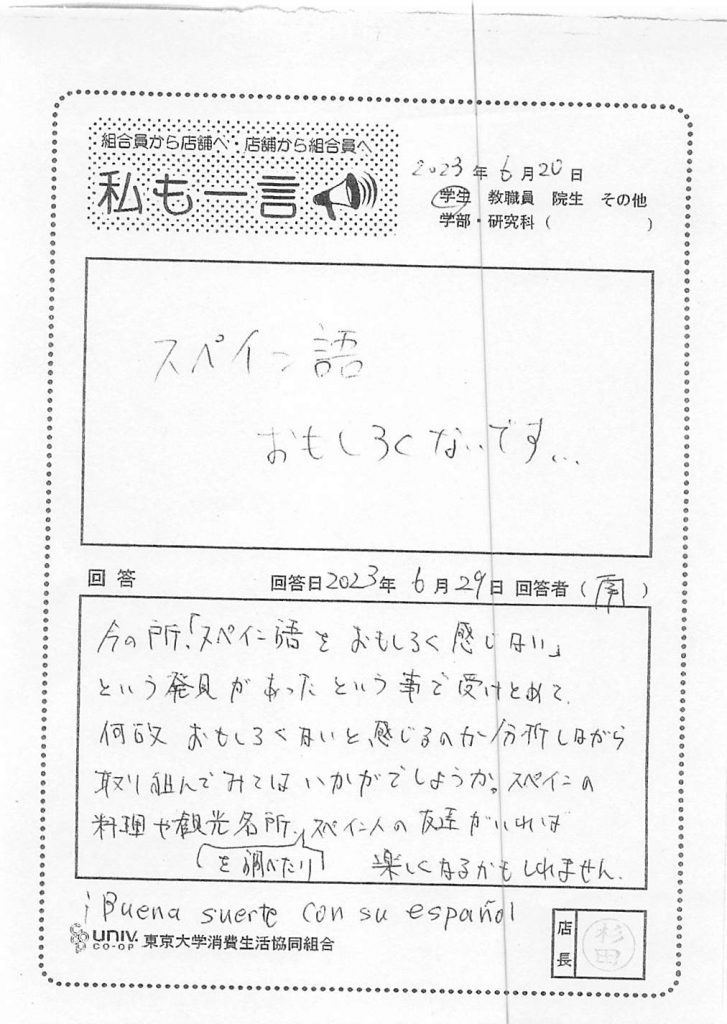 組合員から店舗へ・店舗から組合員へ
私も一言
2023年6月20日
学生 教職員 院生 その他
学部・研究科( )
スペイン語
おもしろくないです...
回答 回答日2023年6月29日 回答者(南)
今の所、「スペイン語をおもしろく感じない」
という発見があったという事で受けとめて、
何故おもしろくないと感じるのか分析しながら
取り組んでみてはいかがでしょうか。スペインの
料理や観光名所、スペイン人の友達がいれば
を調べたり 楽しくなるかもしれません。
¡Buena suerte con su español
univ. CO-OP 東京大学消費生活協同組合
店長 杉田